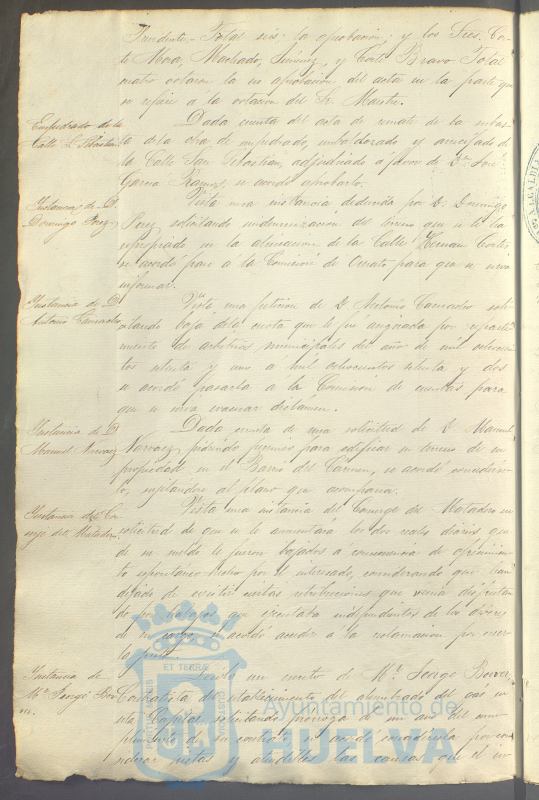 Presidente,- Total seis: la aprobacion; y los Sres. Cor-
te Mora, Machado, Jimenez, y Corte Bravo Total
cuatro votaron la no aprobacion del acta en la parte que
se refiere a la votacion del Sr.
Empedrado de la
Calle S. Sebastian
Dada cuenta del acta de remate de la subas-
ta de la obra de empedrado, embaldosado y arrecifado de
la Calle San Sebastian, adjudicado a favor de Dn. José
Garcia Ramos, se acordó aprobarlo.
Instancia de D.
Domingo Perez
Vista una instancia deducida por D. Domingo
Perez solicitando indemnizacion del terreno que se le ha
expropiado en la alineacion de la Calle Hernan Cortes
se acordó pase á la Comision de Ornato para que se sirva
informar.
Instancia de D.
Antonio Camacho
Vista una peticion de D. Antonio Camacho soli-
citando baja de la cuota que le fué asignada por reparti-
miento de arbitrios municipales del año de mil ochocien-
tos setenta y uno a mil ochocientos setenta y dos
se acordó pasarla a la Comision de cuentas para
que se sirva evacuar dictámen.
Instancia de D.
Manuel Narvaez
Dada cuenta de una solicitud de D. Manuel
Narvaez, pidiendo permiso para edificar en terreno de su
propiedad en el Barrio del Carmen, se acordó concederse-
lo, sujetandose al plano que acompaña.
Instancia del Con-
serje del Matadero
Vista una instancia del Conserge del Matadero en
solicitud de que se le aumentára los dos reales diarios que
de su sueldo le fueron bajados a consecuencia de ofrecimien-
to espontáneo hecho por el interesado, considerando que han
dejado de existir ciertas retribuciones que venia disfrutan-
do por trabajos que ejecutaba independientes de los deberes
de su cargo, se acordó acceder a la reclamacion por creer-
la justa.
Instancia de
Mr. Jorge Bower
Leido un escrito de Mr. Jorge Bower,
Contratista del establecimiento del alumbrado del gas en
esta Capital, solicitando próroga de un año del cum-
plimiento de su contrato se acordó concedersela por con-
siderar justas y atendibles las causas que el in-
ET TERRÆ
Ayuntamiento de
HUELVA
ALCALDIA